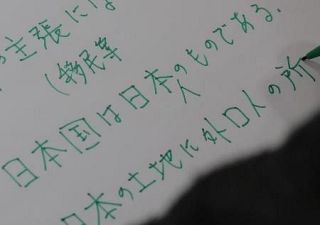 主張には
民等
日本国は日本人のものである.
本の土地に外口人の所